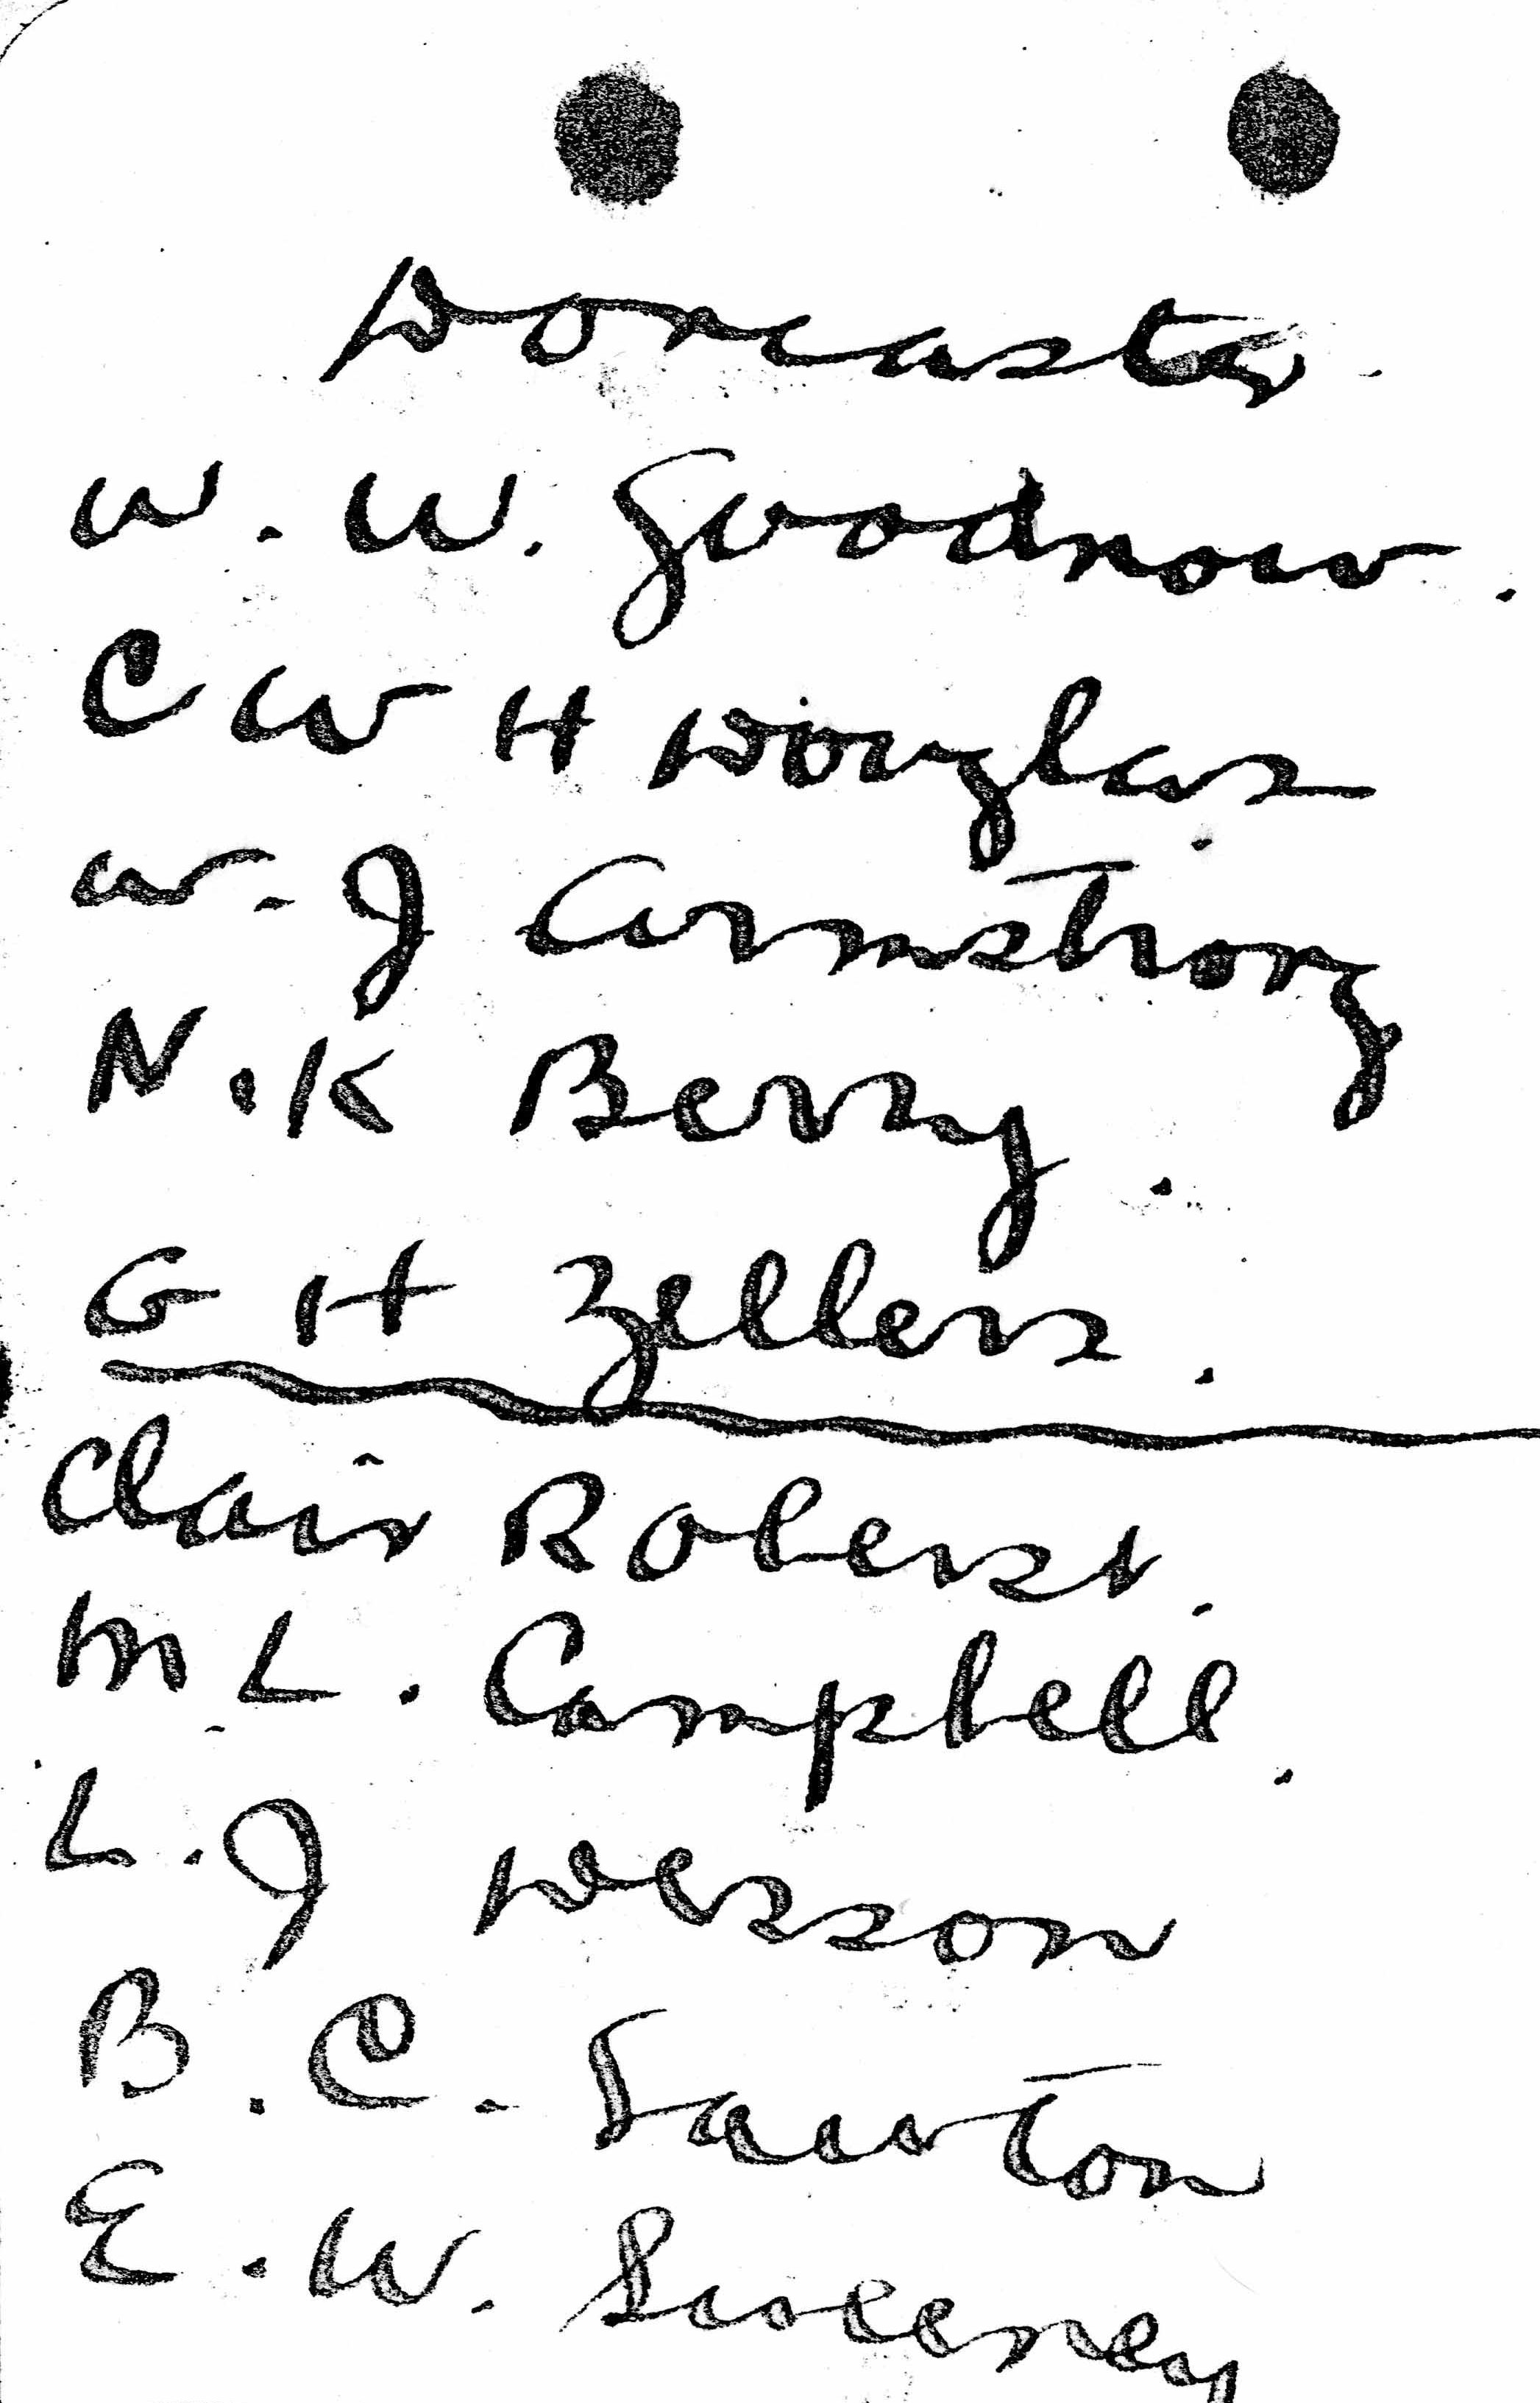 Doncaster
W. W. Goodnow.
C W H Douglas
W. J Armstrong
N. K Berry.
G H Zellers.
Clair Roberst.
M L. Campbell.
L. J Wesson
B. C. Lawton
E. W. Sweeney